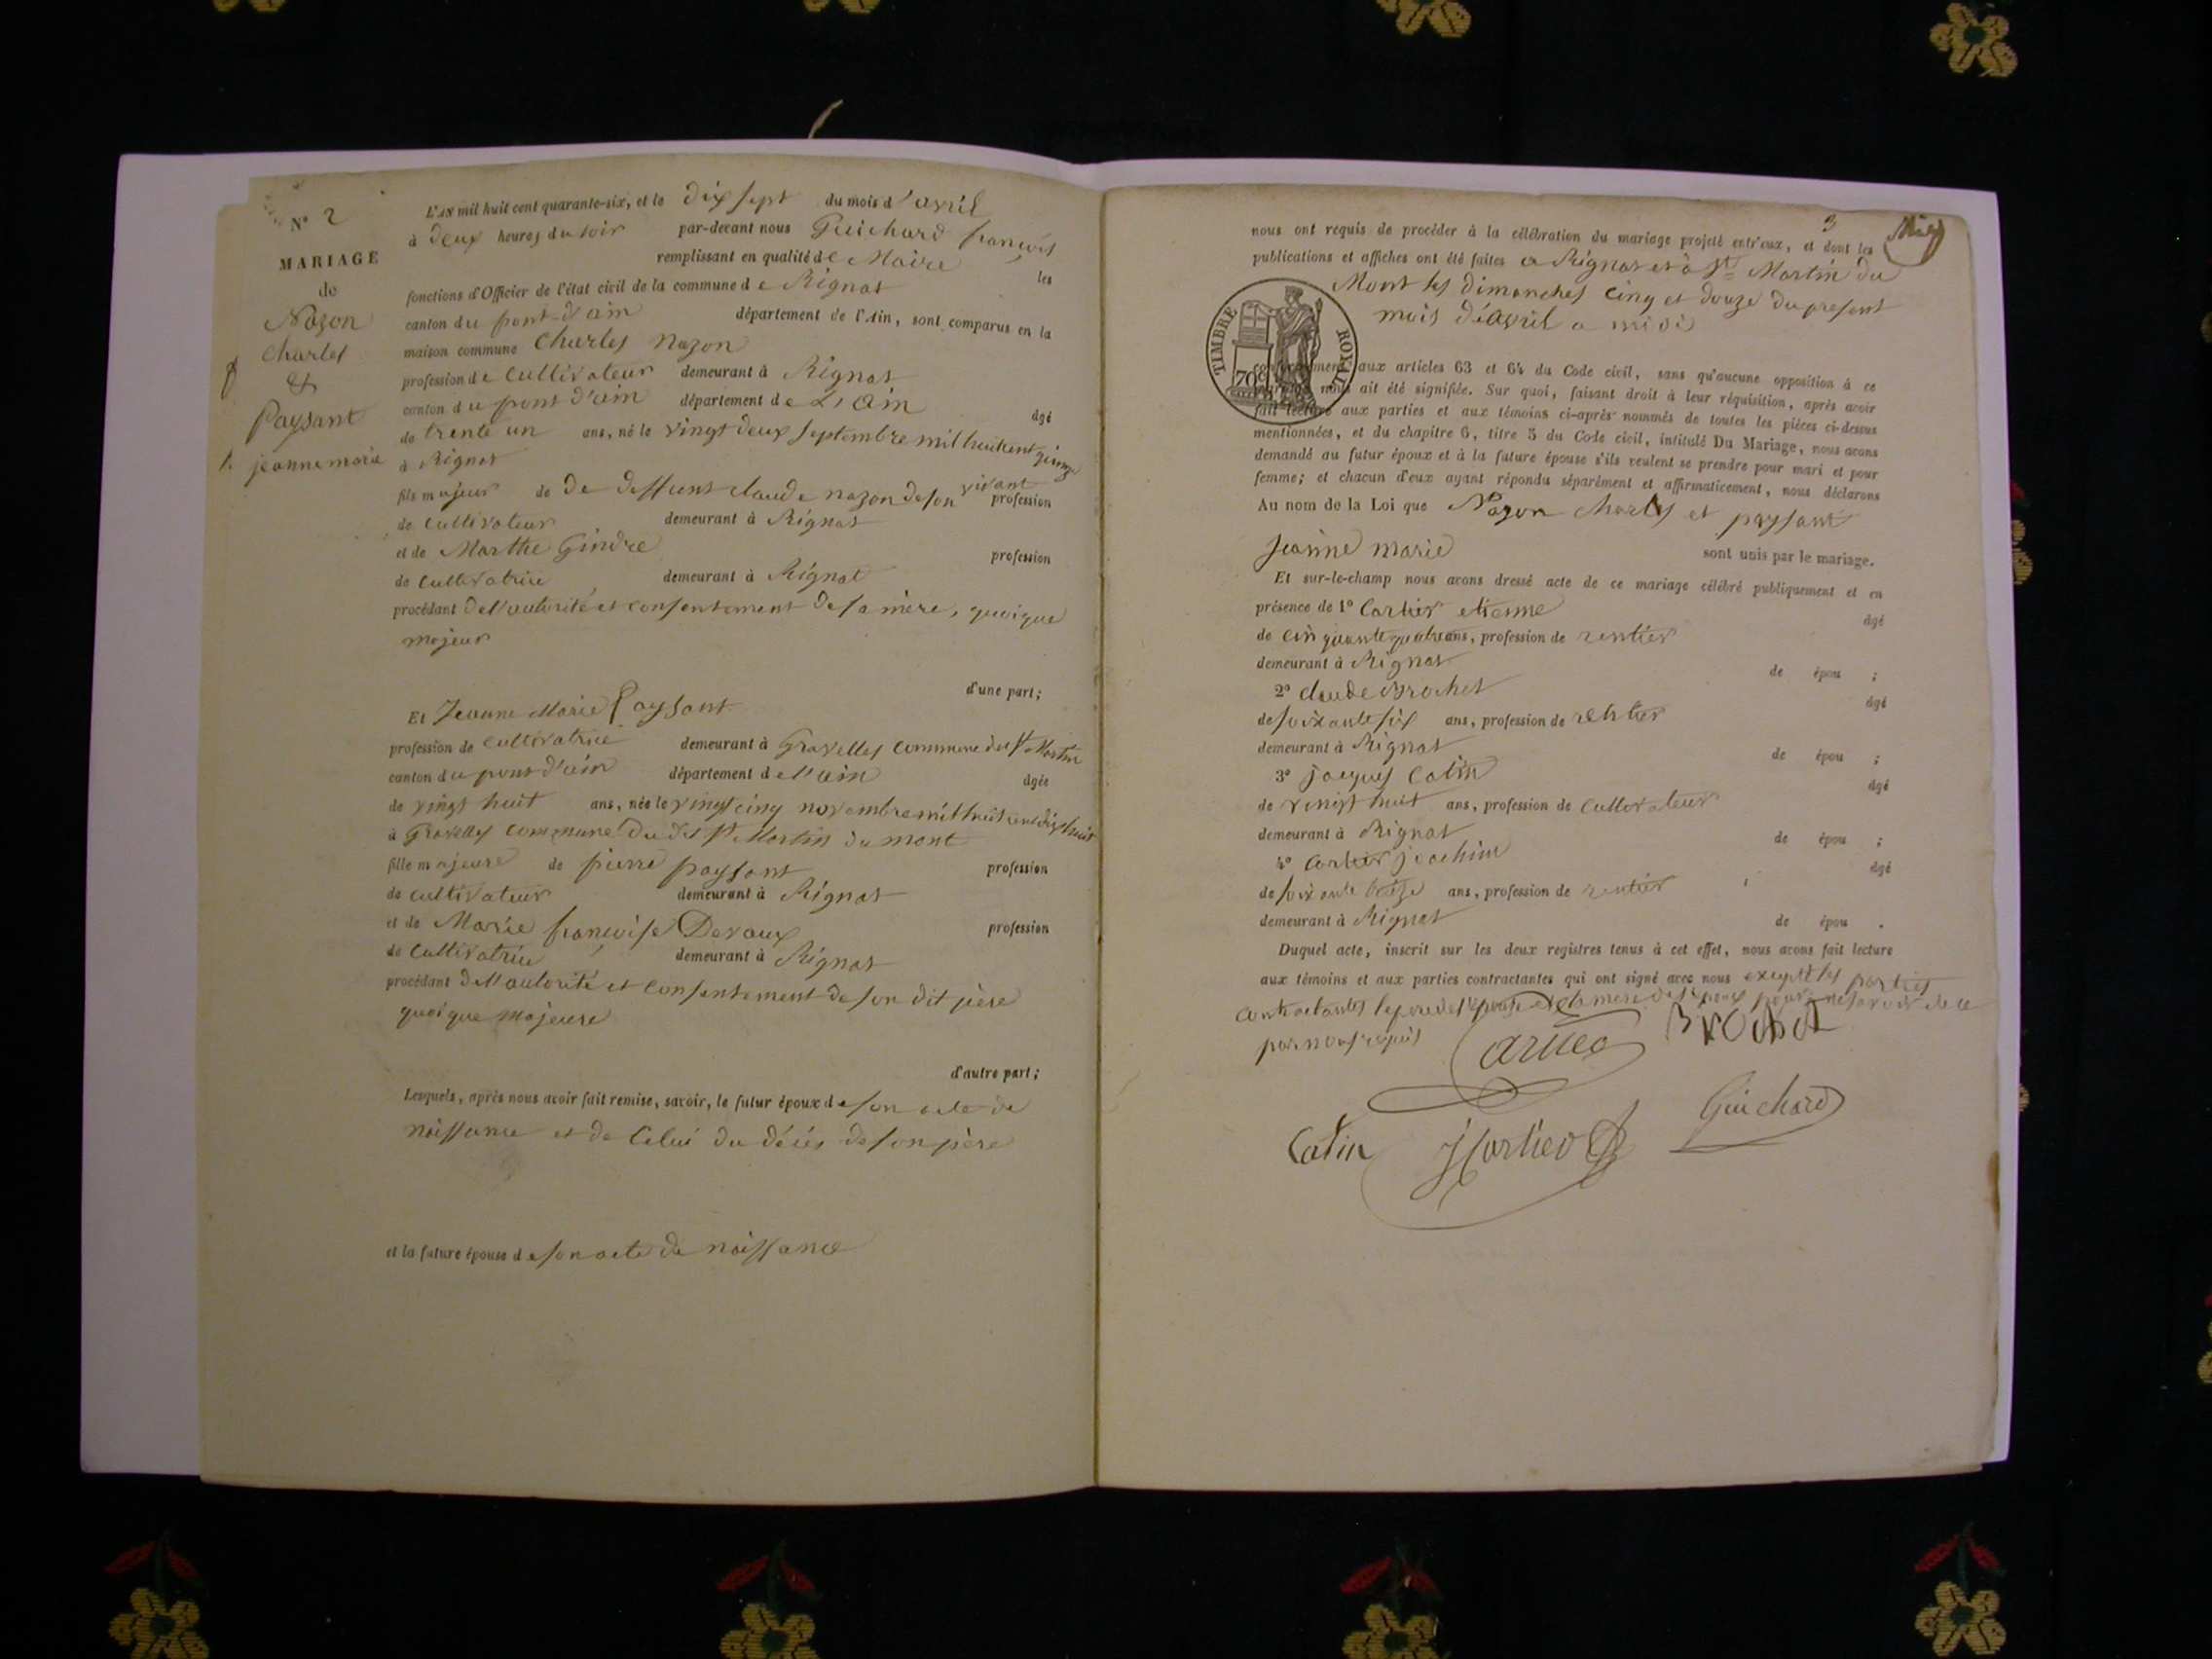 N° 2
MARIAGE
de
Nazon
Charles
&
Paysant
jeanne marie
L'AN mil huit cent quarante-six, et le dix sept du mois d'avril
à deux heures du soir par-devant nous Guichard françois
remplissant en qualité de Maire les
fonctions d'Officier de l'état civil de la commune de Rignat
canton du pont d'ain département de l'Ain, sont comparus en la
maison commune Charles Nazon
profession de Cultivateur demeurant à Rignat
canton du pont d'ain département de L'ain âgé
de trente un ans, né le vingt deux septembre mil huit cent
à Rignat
fils majeur de de deffunt claude nazon de son vivant profession
de Cultivateur demeurant à Rignat
et de Marthe Gindre profession
de Cultivatrice demeurant à Rignat
procédant de l'autorité et consentement de sa mère, quoique
majeur
d'une part;
Et Jeanne Marie Paysant
profession de Cultivatrice demeurant à Gravelles commune de St Martin
canton du pont d'ain département de l'ain âgée
de vingt huit ans, née le vingt cinq novembre mil huit cent dix huit
à Gravelles commune du dit St Martin du mont
fille majeure de pierre paysant profession
de cultivateur demeurant à Rignat
et de Marie françoise Devaux profession
de Cultivatrice demeurant à Rignat
procédant de l'autorité et consentement de son dit père
quoique majeure
d'autre part;
Lesquels, après nous avoir fait remise, savoir, le futur époux de son acte de
naissance et de Celui du décès de son père
et la future épouse de son acte de naissance
3
nous ont requis de procéder à la célébration du mariage projeté entr'eux, et dont les
publications et affiches ont été faites a Rignat et à St Martin du
Mont les dimanches cinq et douze du present
mois d'avril a midi
TIMBRE ROYAL
70c
conformément aux articles 63 et 64 du Code civil, sans qu'aucune opposition à ce
mariage nous ait été signifiée. Sur quoi, faisant droit à leur réquisition, après avoir
fait lecture aux parties et aux témoins ci-après nommés de toutes les pièces ci-dessus
mentionnées, et du chapitre 6, titre 5 du Code civil, intitulé Du Mariage, nous avons
demandé au futur époux et à la future épouse s'ils veulent se prendre pour mari et pour
femme; et chacun d'eux ayant répondu séparément et affirmativement, nous déclarons
Au nom de la Loi que Nazon Charles et paysant
Jeanne marie sont unis par le mariage.
Et sur-le-champ nous avons dressé acte de ce mariage célébré publiquement et en
présence de 1° Cartier etienne âgé
de cinquante quatre ans, profession de rentier
demeurant à Rignat de épou ;
2° claude Brochet âgé
de soixante six ans, profession de rentier
demeurant à Rignat de épou ;
3° jacques Catin âgé
de vingt huit ans, profession de cultivateur
demeurant à Rignat de épou ;
4° Cartier joachim âgé
de soixante treize ans, profession de rentier
demeurant à Rignat de épou .
Duquel acte, inscrit sur les deux registres tenus à cet effet, nous avons fait lecture
aux témoins et aux parties contractantes qui ont signé avec nous excepté les parties
contractantes le pere de l'épouse et la mere de l'époux pour ne savoir de ce
par nous requis
Brochet
Guichard
Catin